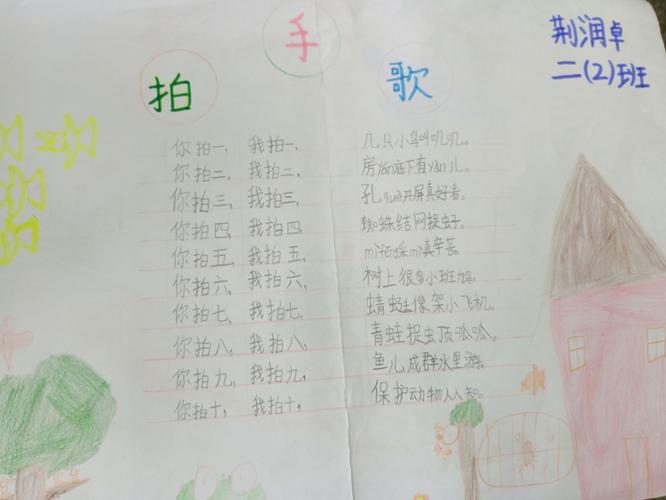 拍手歌
荆润卓
二(2)班
你拍一，我拍一，几只小鸟叫叽叽。
你拍二，我拍二，房yán底下有yàn儿。
你拍三，我拍三，孔què开屏真好看。
你拍四，我拍四，蜘蛛结网捉虫子。
你拍五，我拍五，mì fēng采mì真辛苦。
你拍六，我拍六，树上很多小班鸠。
你拍七，我拍七，蜻蜓像架小飞机。
你拍八，我拍八，青蛙捉虫顶呱呱。
你拍九，我拍九，鱼儿成群水里游。
你拍十，我拍十，保护动物人人知。